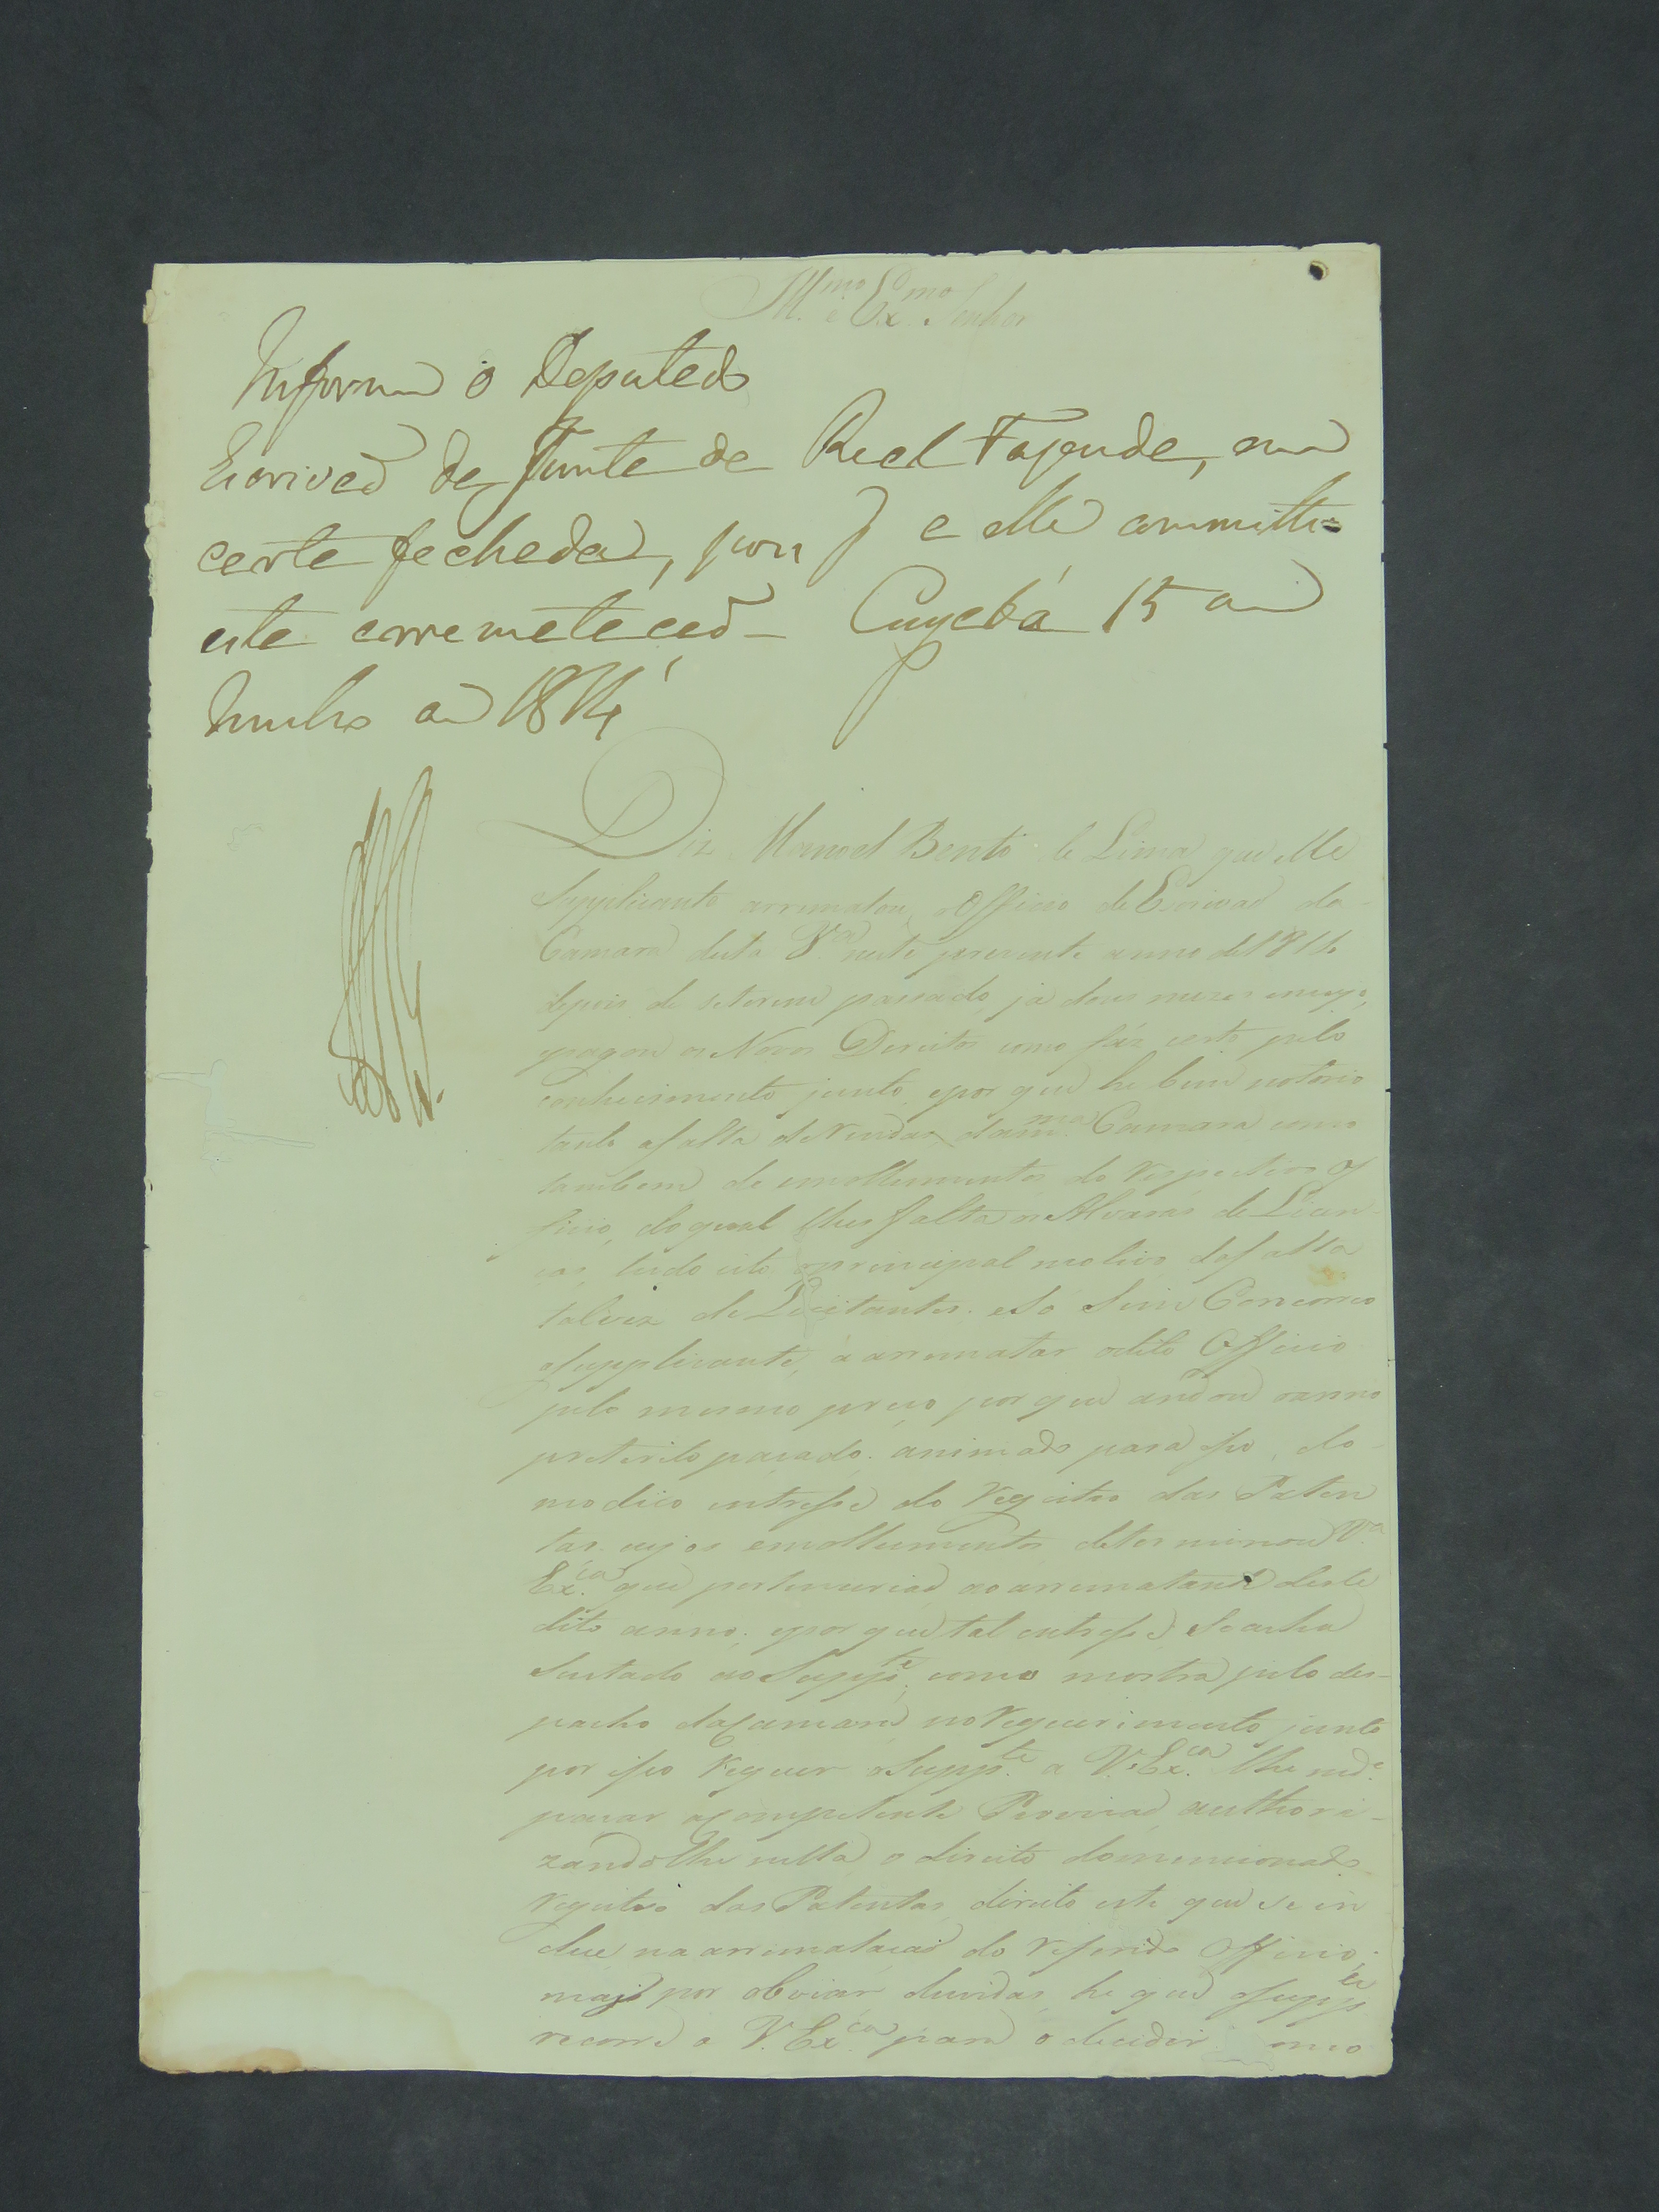 Ill.mo e Ex.mo Senhor
Informe o Deputado
Escrivaõ da Junta da Real Fazenda, em
carta fechada, por q a elle committi
esta arremataçaõ Cuyabá 15 de
Junho de 1814
Diz Manoel Bento de Lima que elle
Supplicante arrematou o Officio de Escrivaõ da
Camara desta V.a neste prezente anno de 1814
depois de se terem passado ja dous mezes e meyo,
pagou os Novos Direitos como fáz certo pelo
conhecimento junto, e por que he bem notorio
tanto a falta de Rendas da m.ma Camara como
tambem de emollumentos do respectivo Of
ficio, do qual lhes falta os Alvarás de Licen-
ças, tudo isto o principal motivo da falta
talvez de Licitantes. e só sim Concorreo
o supplicante, á arrematar o dito Officio
pelo mesmo preço por que andou o anno
preterito passado. animado para isso, do
modico intresse do Registro das Paten
tes. cujos emollumentos determinou V.a
Ex.ca que pertenceriaõ ao arrematante deste
dito anno. e por que tal intresse se acha
Sustado ao Supp.te como mostra pelo des-
pacho da Camara no Requerimento junto
por isso Requer o Supp.te a V. Ex.ca lhe md.e
passar a Competente Provizaõ authori-
zandolhe nella o direito do mencionado
registro das Patentes, direito este que se in
clue na arremataçaõ do referido Officio;
mas por obviar duvidas he que o supp.te
recorre a V. Ex.ca para o decidir como